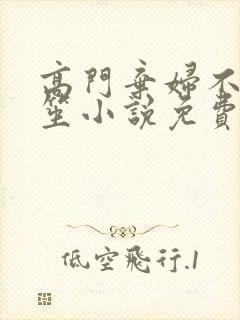 高門棄婦不
笙小說免費
低空飛行.1